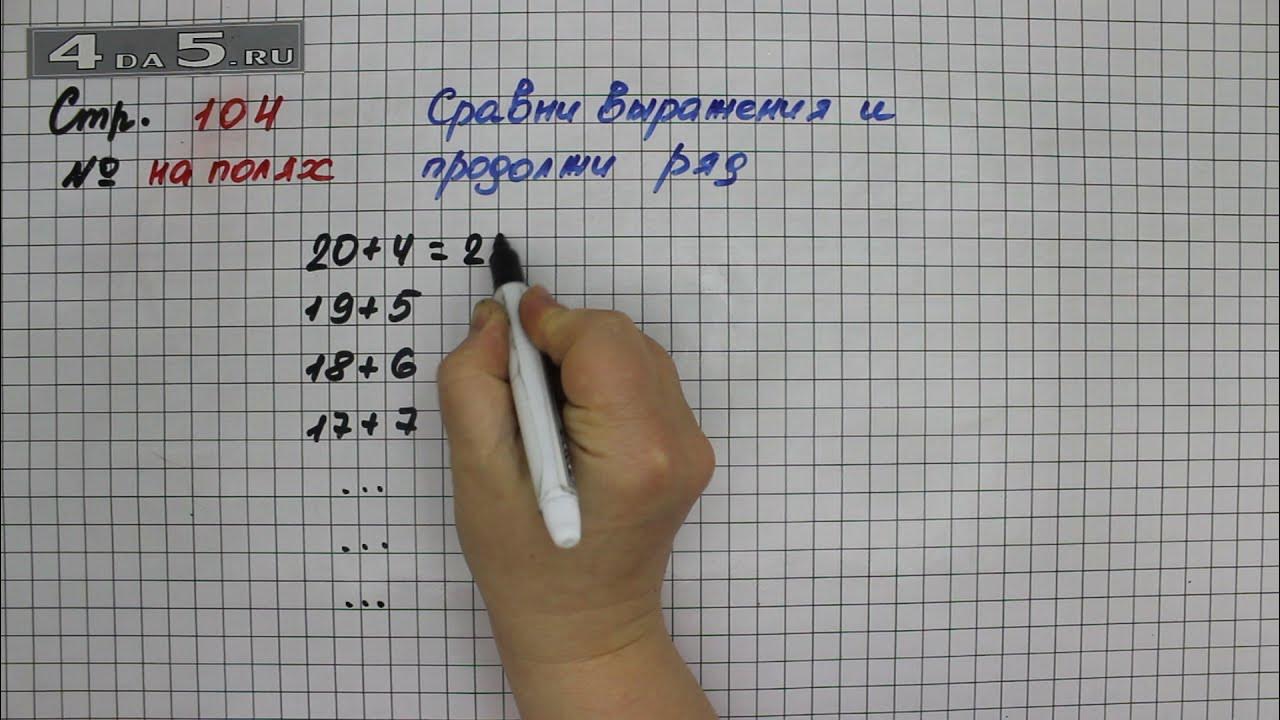 4DA5.RU
Стр. 104 Сравни выражения и
№ на полях продолжи ряд
20+4=2
19+5
18+6
17+7
...
...
...